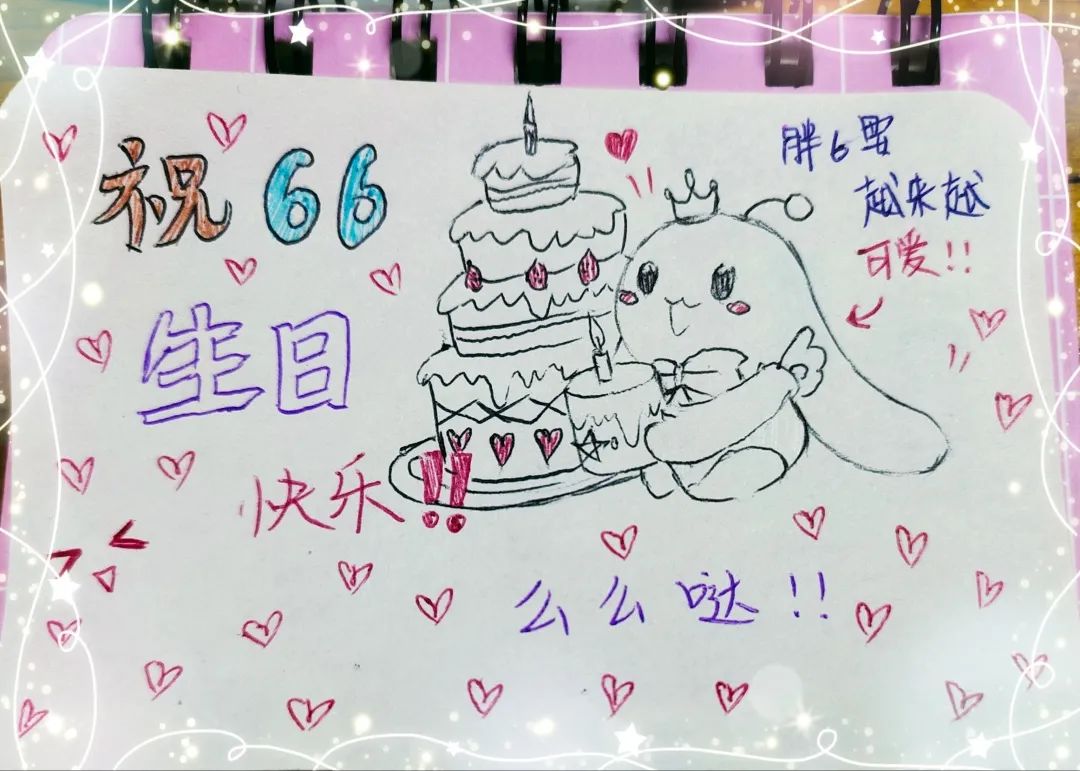 祝66
生日
快乐!!
胖6要
越来越
可爱!!
么么哒!!